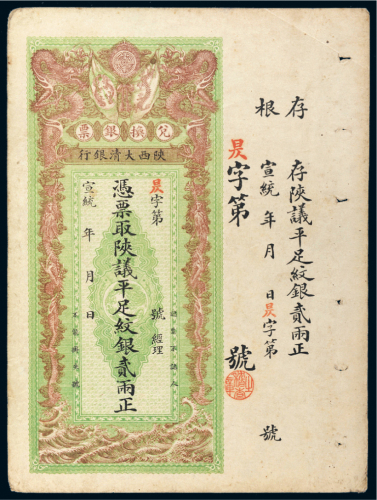 存根
存陝議平足紋銀貳兩正
宣統 年 月 日昃字第 號
昃字第 號
兌換銀票
陝西大清銀行
昃字第 號
經理
憑票取陝議平足紋銀貳兩正
宣統 年 月 日